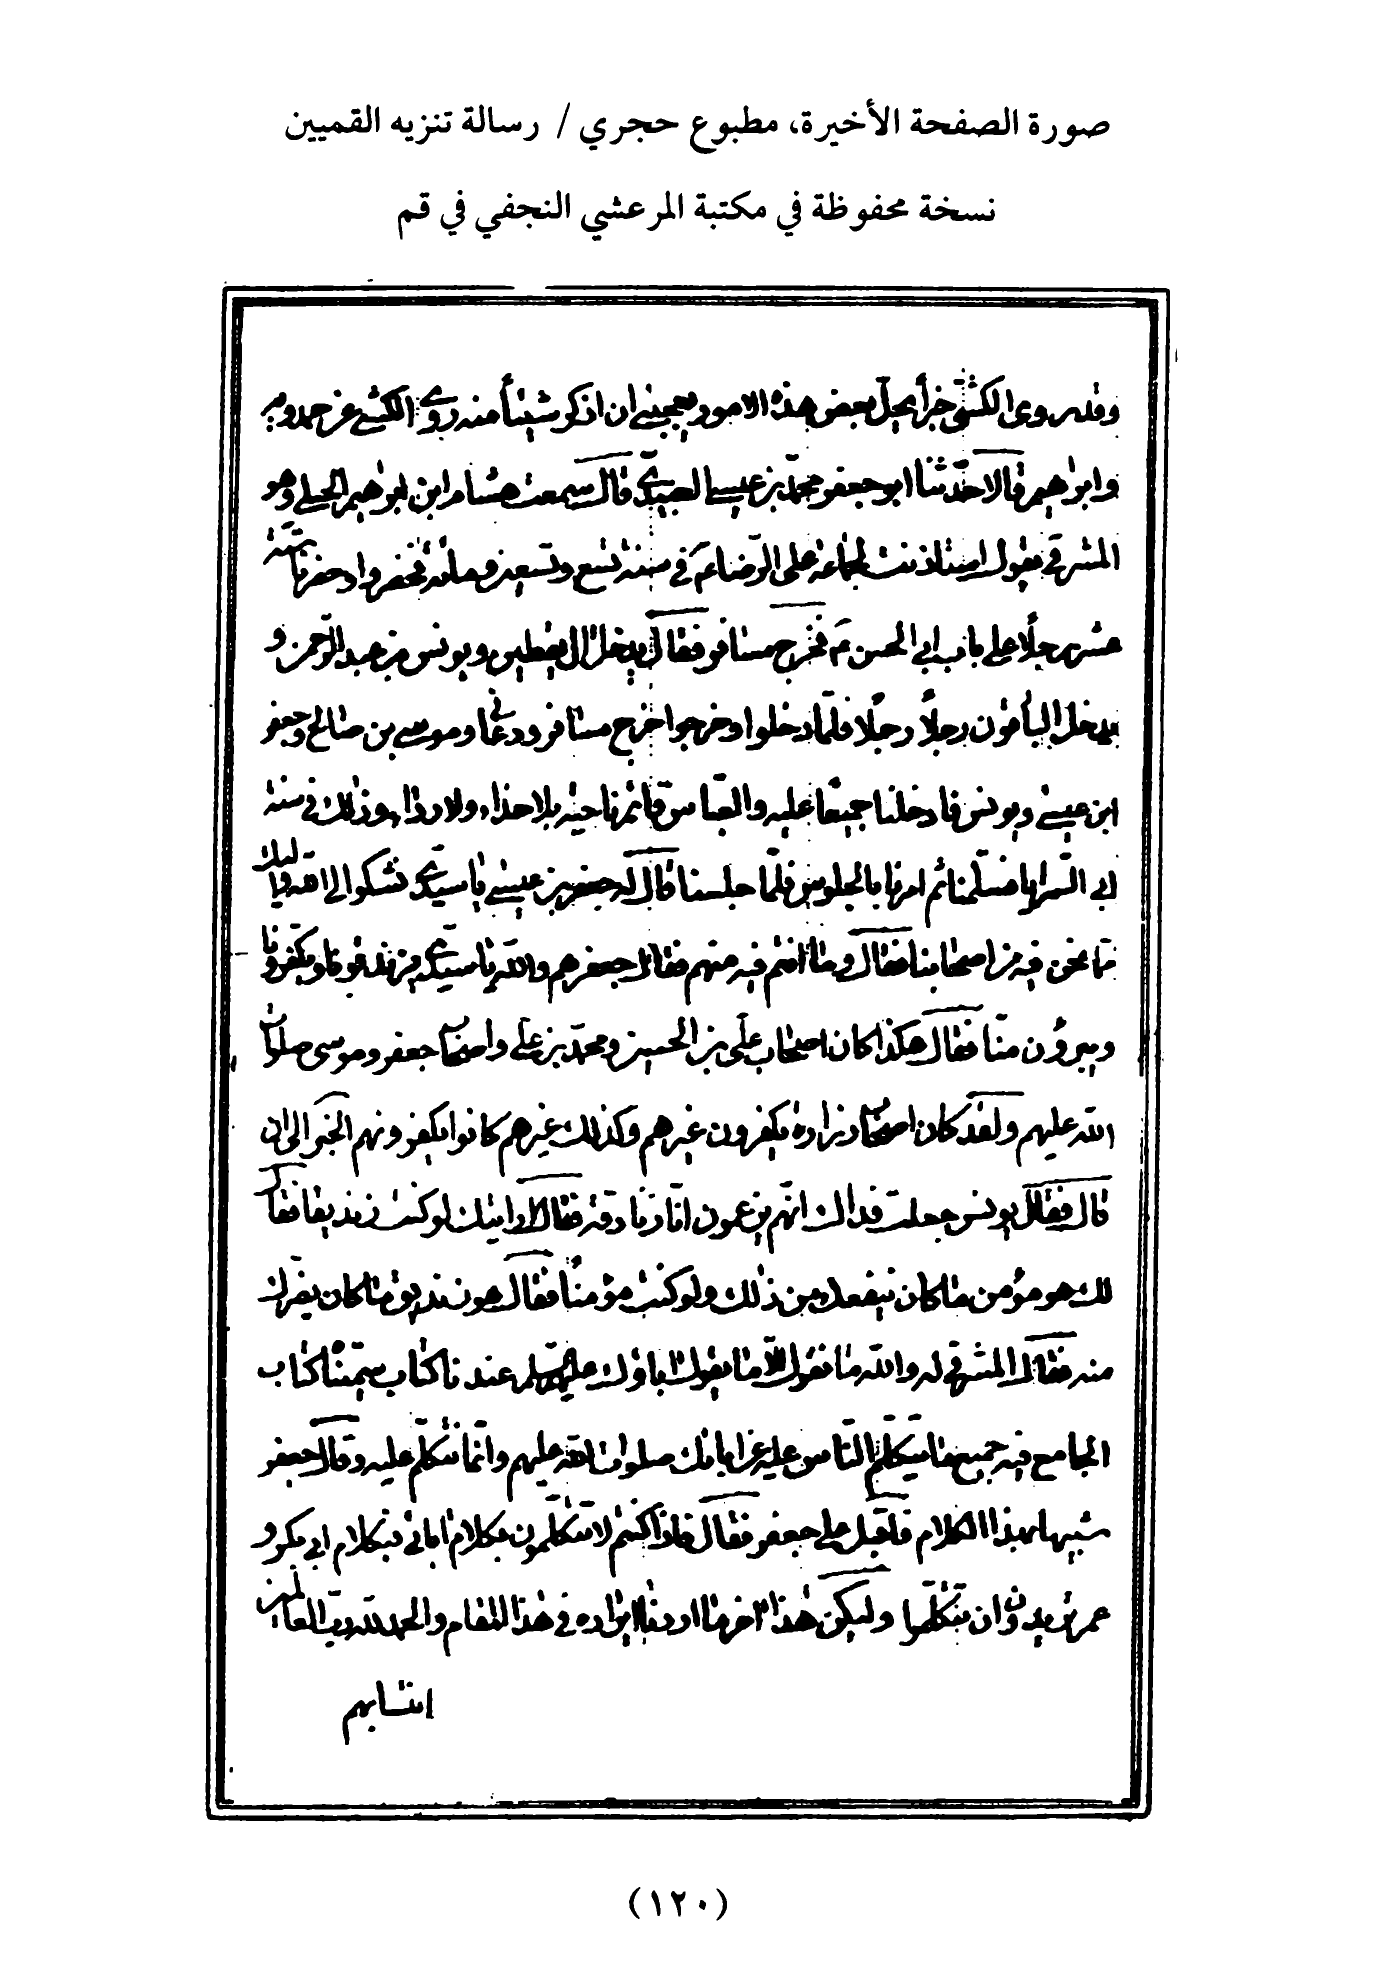 صورة الصفحة الأخيرة، مطبوع حجري / رسالة تنزيه القميين
نسخة محفوظة في مكتبة المرعشي النجفي في قم
وقد روى الكشى خبرا يحل بعض هذه الامور يعجبنى ان اذكر شيئا منه روى الكشى عن حمدويه
وابراهيم قالا حدثنا ابو جعفر محمد بن عيسى العبيدى قال سمعت هشام ابن ابراهيم الجبلى وهو
المشرقى يقول استاذنت لجماعة على الرضا ع فى سنة تسع وتسعين ومائة فحضروا وحضرنا ستة
عشر رجلا على باب ابى الحسن ع فخرج مسافر فقال يدخل ال يقطين ويونس بن عبد الرحمن و
يدخل الباقون رجلا رجلا فلما دخلوا وخرجوا خرج مسافر ودعانى وموسى بن صالح وجعفر
ابن عيسى ويونس فادخلنا جميعا عليه والعباس قائم ناحية بلا حذاء ولا رداء وذلك فى سنة
ابى السرايا فسلمنا ثم امرنا بالجلوس فلما جلسنا قال له جعفر بن عيسى يا سيدى نشكوا الى الله واليك
ما نحن فيه من اصحابنا فقال وما انتم فيه منهم فقال جعفر هم والله يا سيدى يزندقونا ويكفرونا
ويبرؤن منا فقال هكذا كان اصحاب على بن الحسين ومحمد بن على واصحاب جعفر وموسى صلوات
الله عليهم ولقد كان اصحاب زرارة يكفرون غيرهم وكذلك غيرهم كانوا يكفرونهم الخبر الى ان
قال فقال يونس جعلت فداك انهم يزعمون انا زنادقة فقال ارايتك لو كنت زنديقا فقال
لك هو مؤمن ما كان ينفعك من ذلك ولو كنت مؤمنا فقال هو زنديق ما كان يضرك
منه فقال المشرقى له والله ما نقول الا ما يقول اباؤك عليهم السلم عندنا كتاب سميناه كتاب
الجامع فيه جميع ما يتكلم الناس عليه عن ابائك صلوات الله عليهم وانما نتكلم عليه وقال جعفر
شبيها بهذا الكلام فاقبل على جعفر فقال فاذا كنتم لا تتكلمون بكلام ابائى فبكلام ابى بكر و
عمر تريدون ان تتكلموا وليكن هذا اخر ما اردنا ايراده فى هذا المقام والحمد لله رب العالمين
(١٢٠)